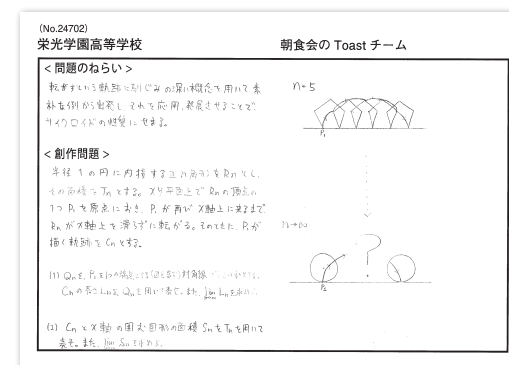 (No.24702)
栄光学園高等学校
朝食会の Toast チーム
＜問題のねらい＞
転がすという軌跡に馴じみの深い概念を用いて素
朴な例から出発し それを応用、発展させることで
サイクロイドの性質にせまる。
＜創作問題＞
半径1の円に内接する正n角形を Rn とし、
その面積を Tn とする。XY平面上で Rn の頂点の
1つ P1を原点におき、P1 が再び X軸上に来るまで
Rn が X軸上を滑らずに転がる。そのとき、P1が
描く軌跡を Cn とする。
(1) Qnを、P1を1つの端点とする
対角線
Cn の長さ Lnを、Qn を用いて表せ。また、lim Ln を求めよ。
(2) Cn と X軸 の囲む図形の面積 Sn を Tn を用いて
表せ。また、lim Sn を求めよ。
n=5
P1
n→∞
?
P1